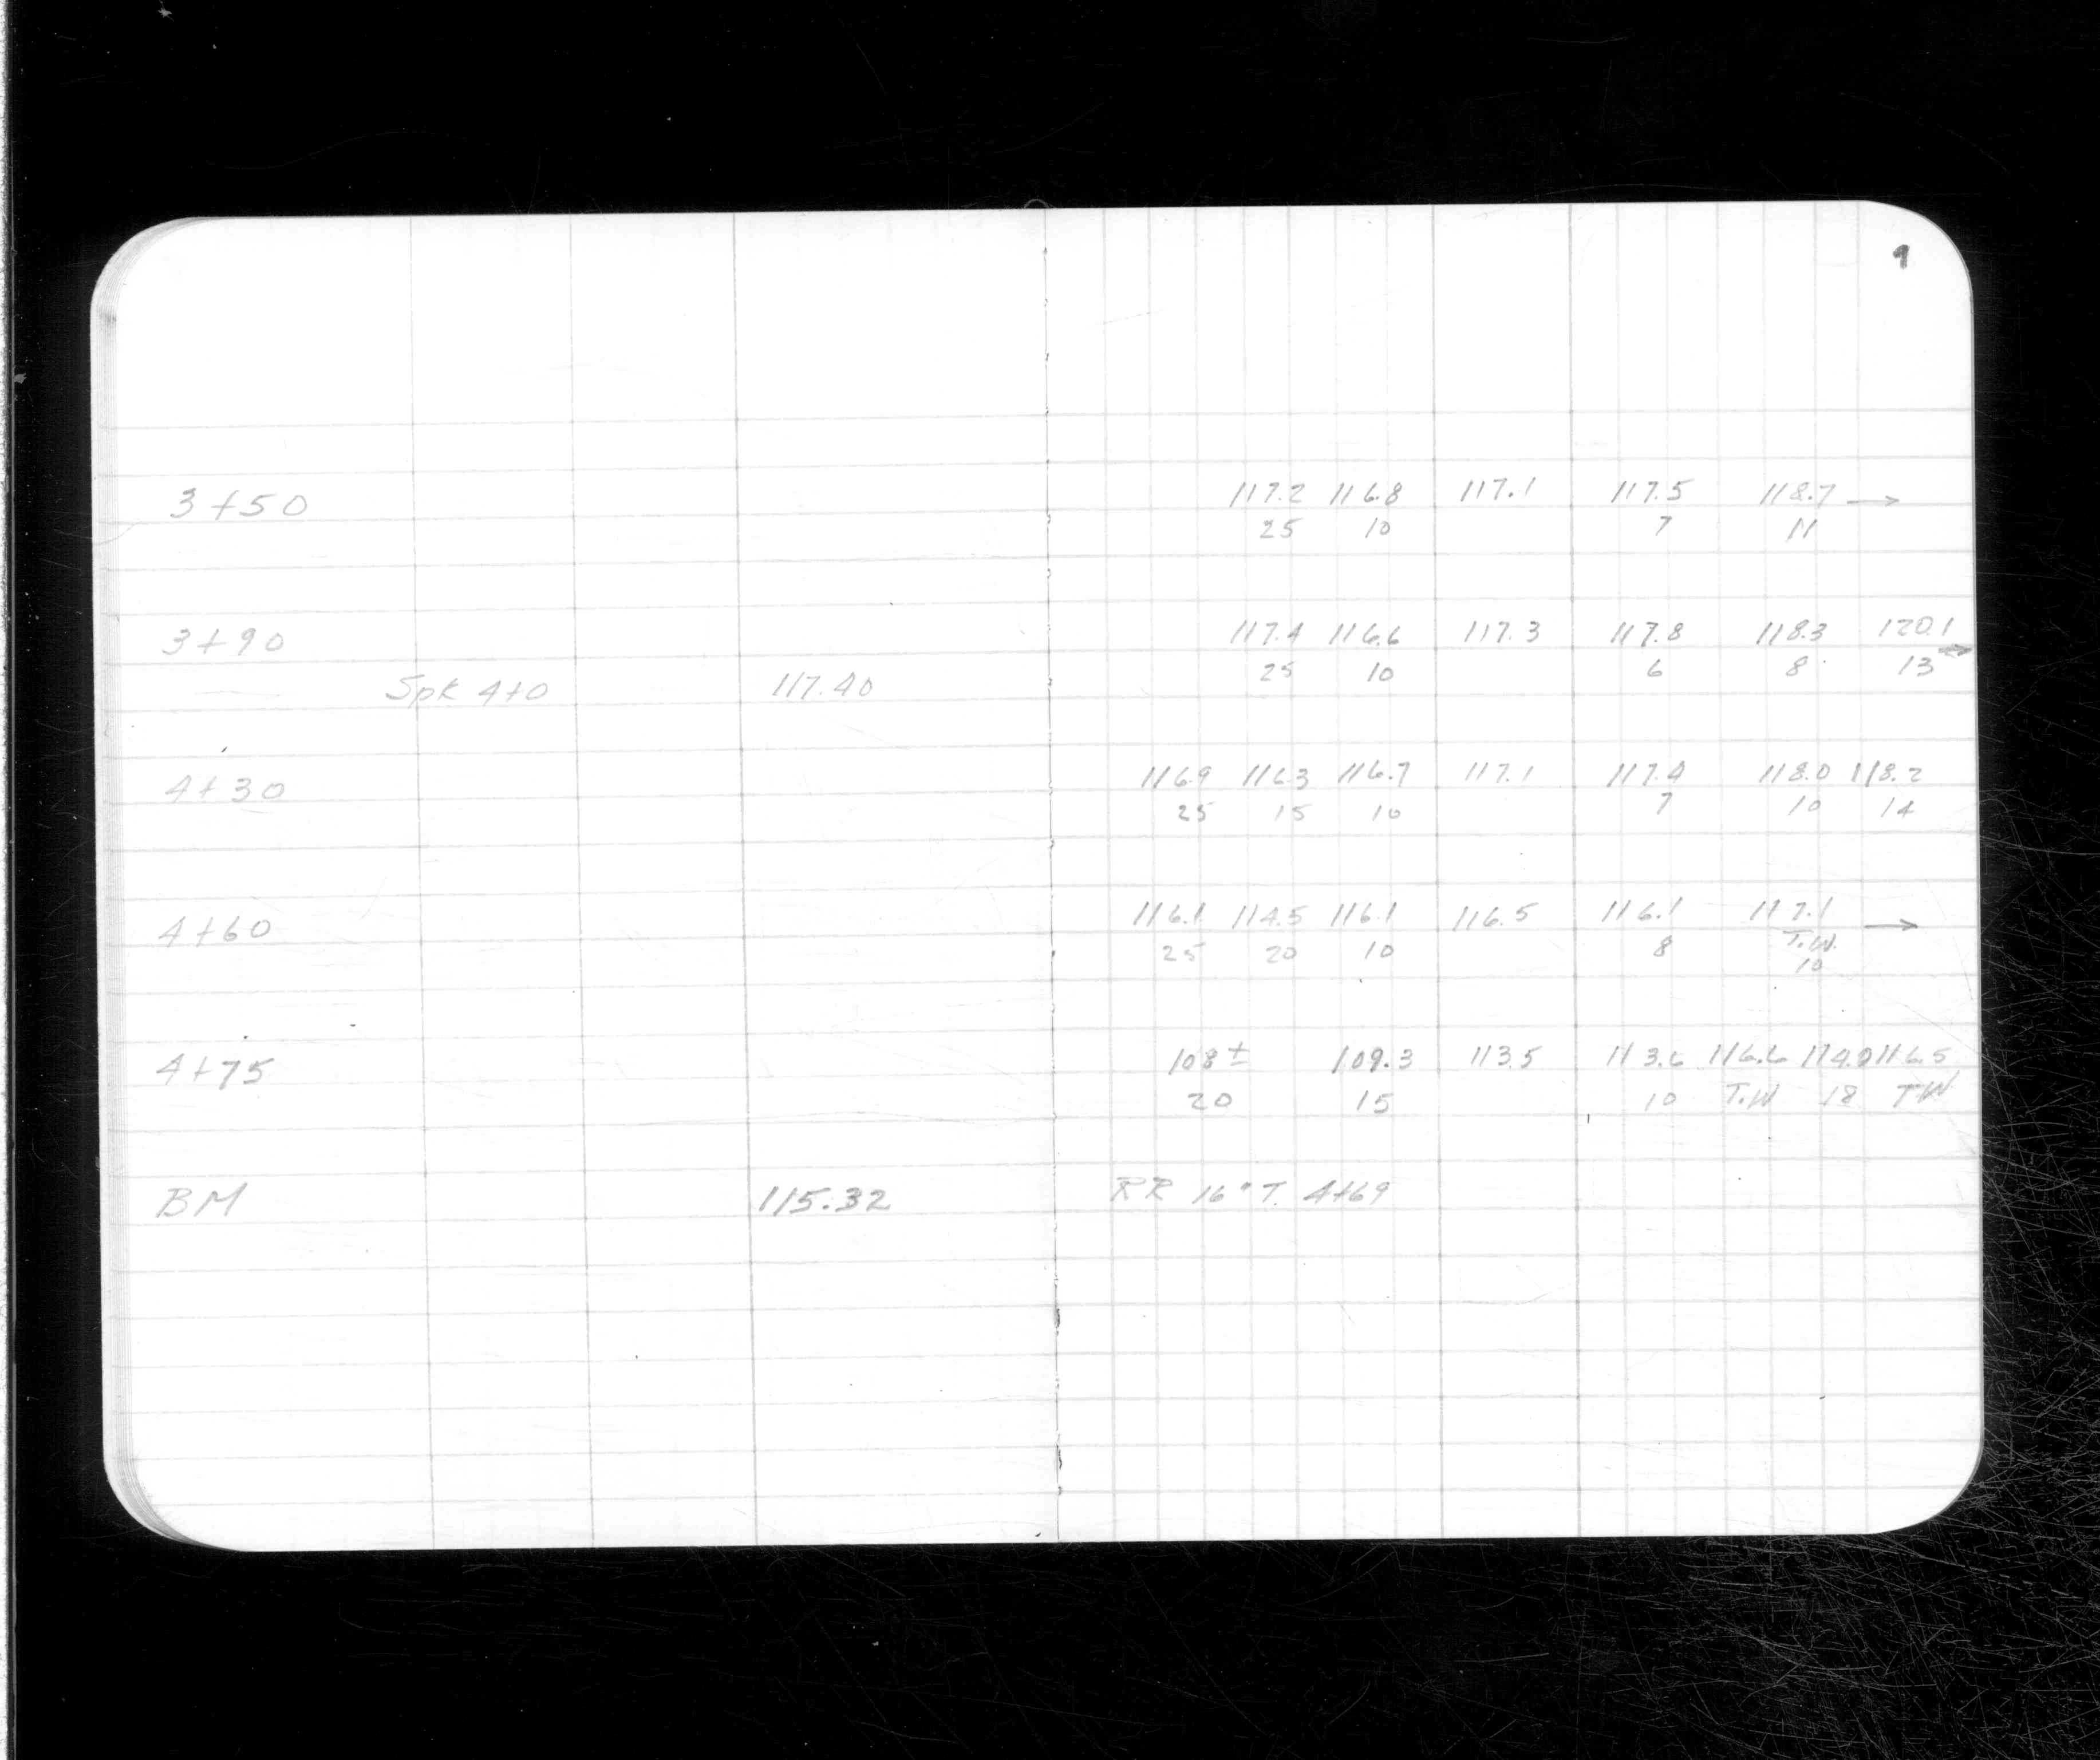 9
3+50 117.2 116.8 117.1 117.5 118.7 →
25 10 7 11
3+90 117.4 116.6 117.3 117.8 118.3 120.1 →
25 10 6 8 13
Spk 4+0 117.40
4+30 116.9 116.3 116.7 117.1 117.4 118.0 118.2
25 15 10 7 10 14
4+60 116.1 114.5 116.1 116.5 116.1 117.1 →
25 20 10 8 T.W.
10
4+75 108± 109.3 113.5 113.6 116.6 114.0 116.5
20 15 10 T.W 18 TW
BM 115.32 RR 16" T. 4+69